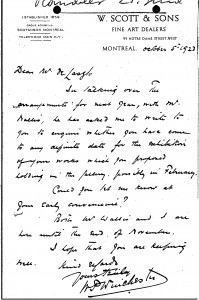 ESTABLISHED 1859
SCOTSONS MONTREAL
W. SCOTT & SONS
FINE ART DEALERS
99 NOTRE DAME STREET WEST
MONTREAL, October 5th 1923
Dear Mr
In talking over the
arrangements for next year, with Mr.
he has asked me to write to
you to enquire whether you have come
to any definite date for the exhibition
of your works which you proposed
holding in the gallery, possibly in February.
Could you let me know at
your early convenience?
Both Mr and I are
here until the end of November.
I hope that you are keeping
well. Kind regards
Yours truly